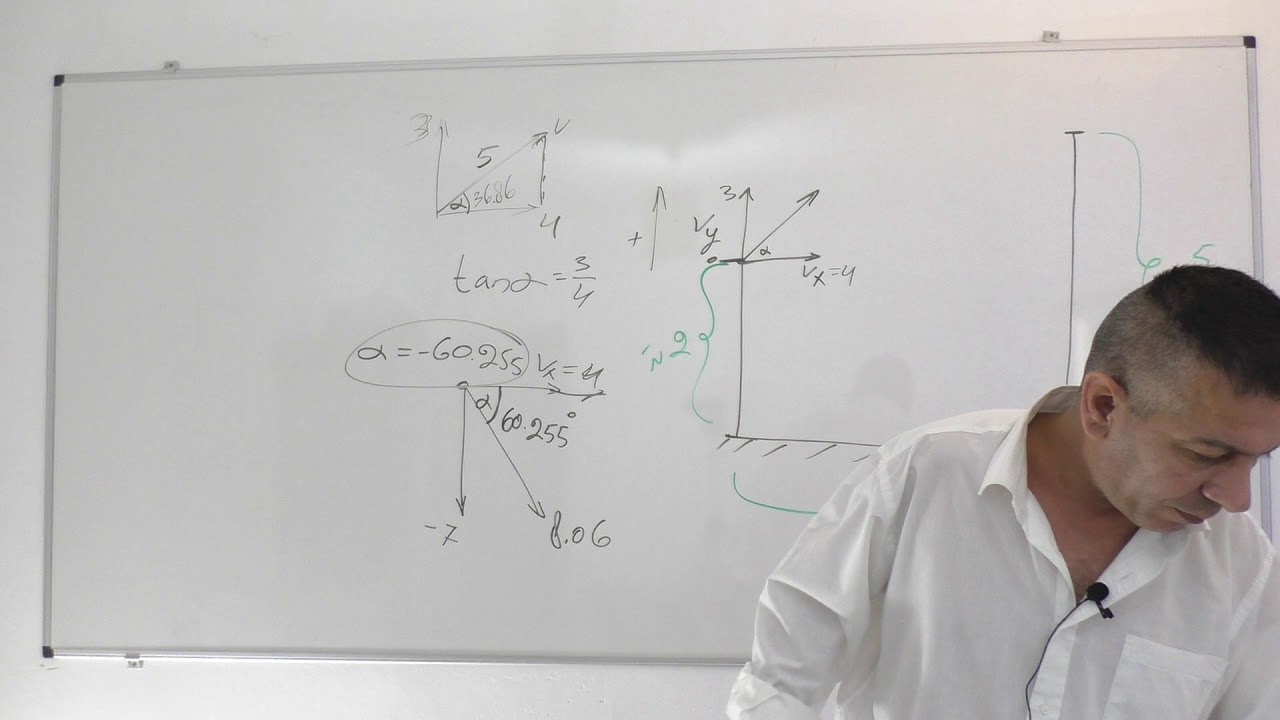 3 V
5
α 36.86
4
tanα = 3/4
α = -60.255 Vx = 4
α 60.255°
-7 8.06
+ 3
Vy
α
Vx = 4